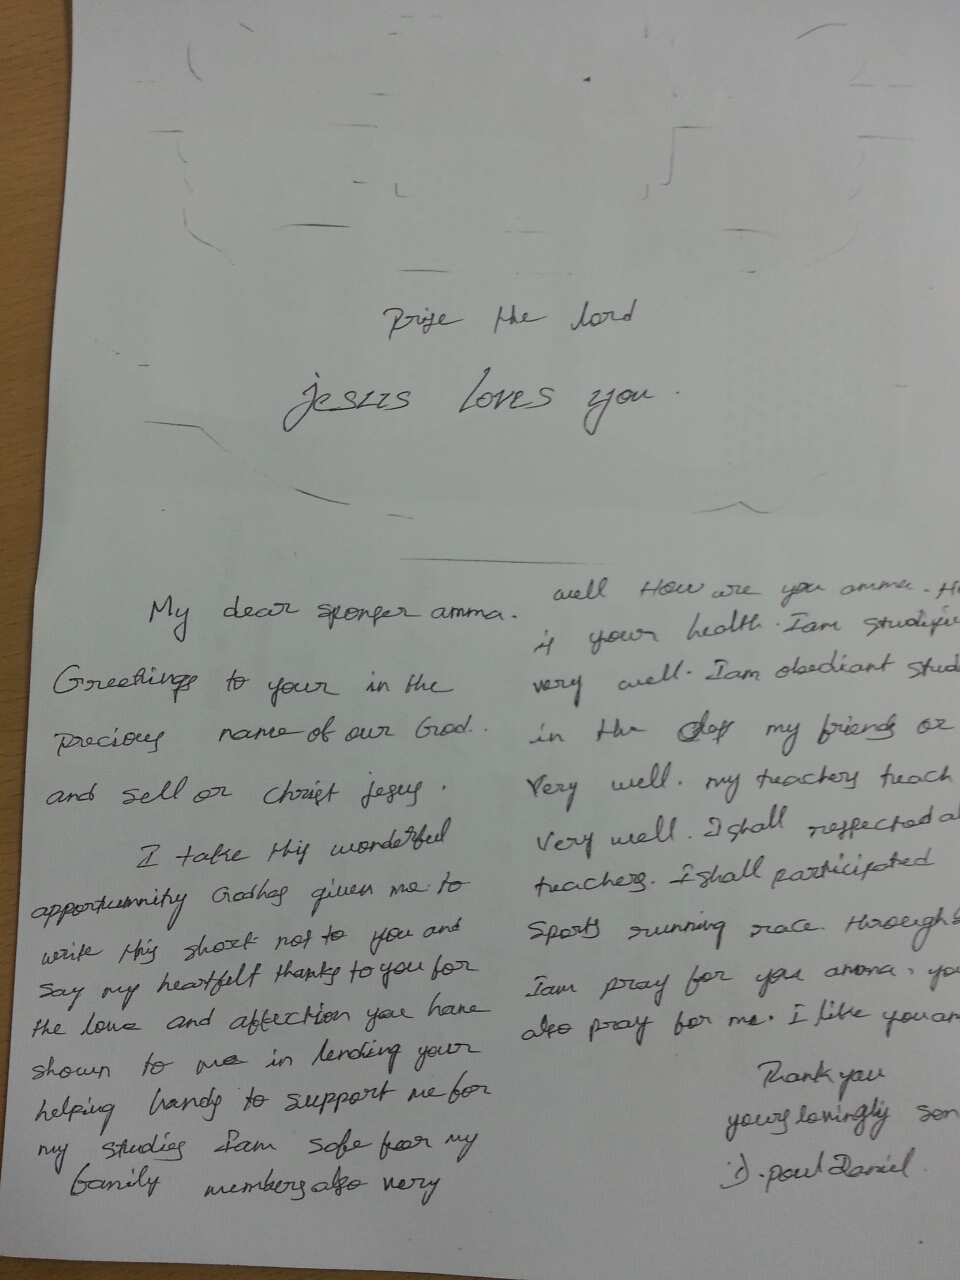 Prise the lord
jesus loves you.
My dear sponser amma.
Greetings to your in the
precious name of our God..
and sell or christ jesus.
I take this wonderful
apportumnity Godhas given me to
write this short not to you and
say my heartfelt thanks to you for
the love and affection you have
shown to me in lending your
helping hands to support me for
my studies Iam safe fear my
family members also very
well How are you amma. H
is your health. Iam studyi
very well. Iam obediant stud
in the my friends or
Very well. my teachers teach
Very well. I shall respected a
teachers. I shall participated
Sports running race. through
Iam pray for you amma, yo
also pray for me. I like you am
Thank you
yours lovingly son
D. poul Daniel.